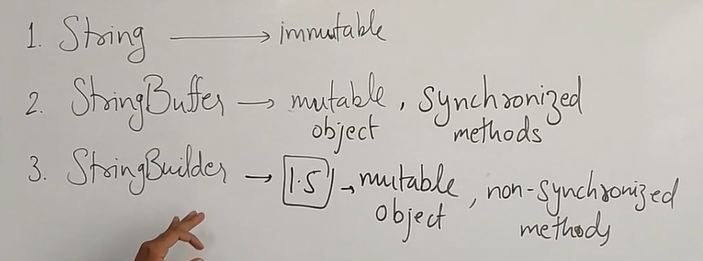 1. String → immutable
2. StringBuffer → mutable object, Synchronized methods
3. StringBuilder → 1.5 → mutable object, non-synchronized methods